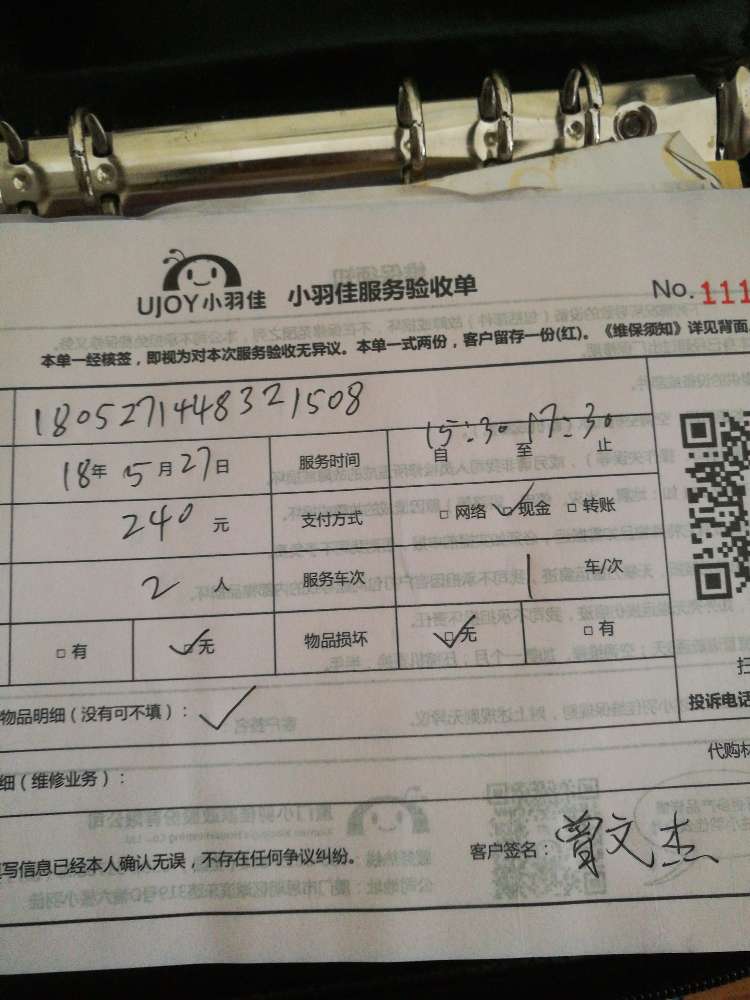 UJOY小羽佳 小羽佳服务验收单 No.111
本单一经核签，即视为对本次服务验收无异议。本单一式两份，客户留存一份(红)。《维保须知》详见背面
1805271448321508
18年 5月27日 服务时间 15:30 17:30
自 至 止
240 元 支付方式 □ 网络 ☑现金 □ 转账
2 人 服务车次 1 车/次
□ 有 ☑无 物品损坏 ☑无 □ 有
扫
物品明细（没有可不填）： ✓ 投诉电话
细（维修业务）： 代购材
写信息已经本人确认无误，不存在任何争议纠纷。 客户签名：曾文杰